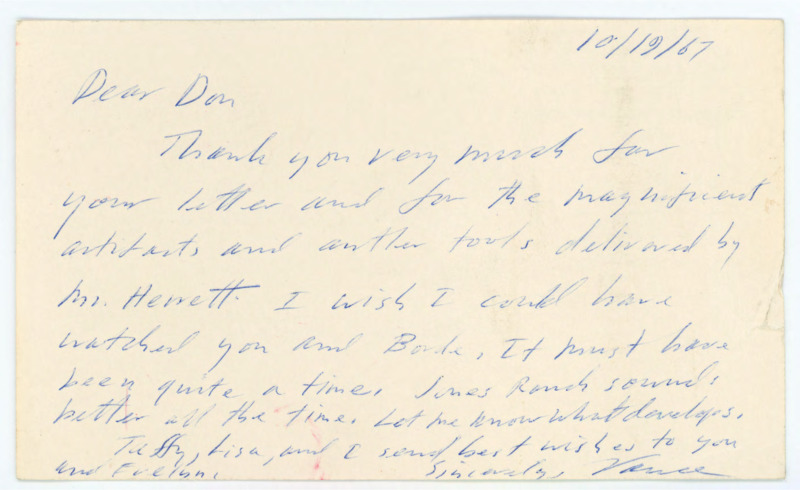 10/19/67
Dear Don
Thank you very much for
your letter and for the magnificent
artifacts and antler tools delivered by
Mr. Herrett. I wish I could have
watched you and Borde. It must have
been quite a time. Jones Ranch sounds
better all the time. Let me know what develops.
Taffy, Lisa, and I send best wishes to you
and Evelyn. Sincerely, Vance